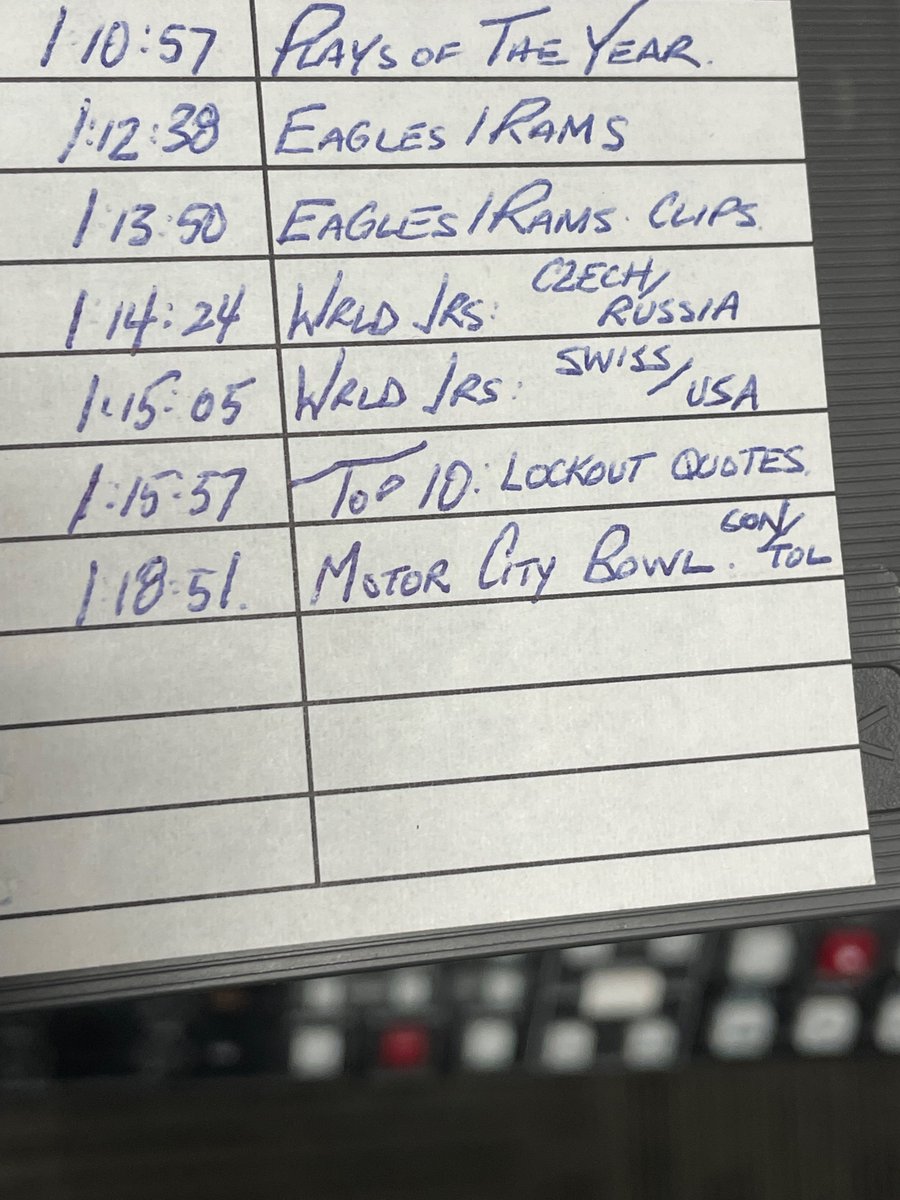 1:10:57 PLAYS OF THE YEAR.
1:12:38 EAGLES / RAMS
1:13:50 EAGLES / RAMS CLIPS.
1:14:24 WRLD JRS: CZECH/ RUSSIA
1:15:05 WRLD JRS: SWISS/ USA
1:15:57 TOP 10: LOCKOUT QUOTES.
1:18:51. MOTOR CITY BOWL. CON/ TOL